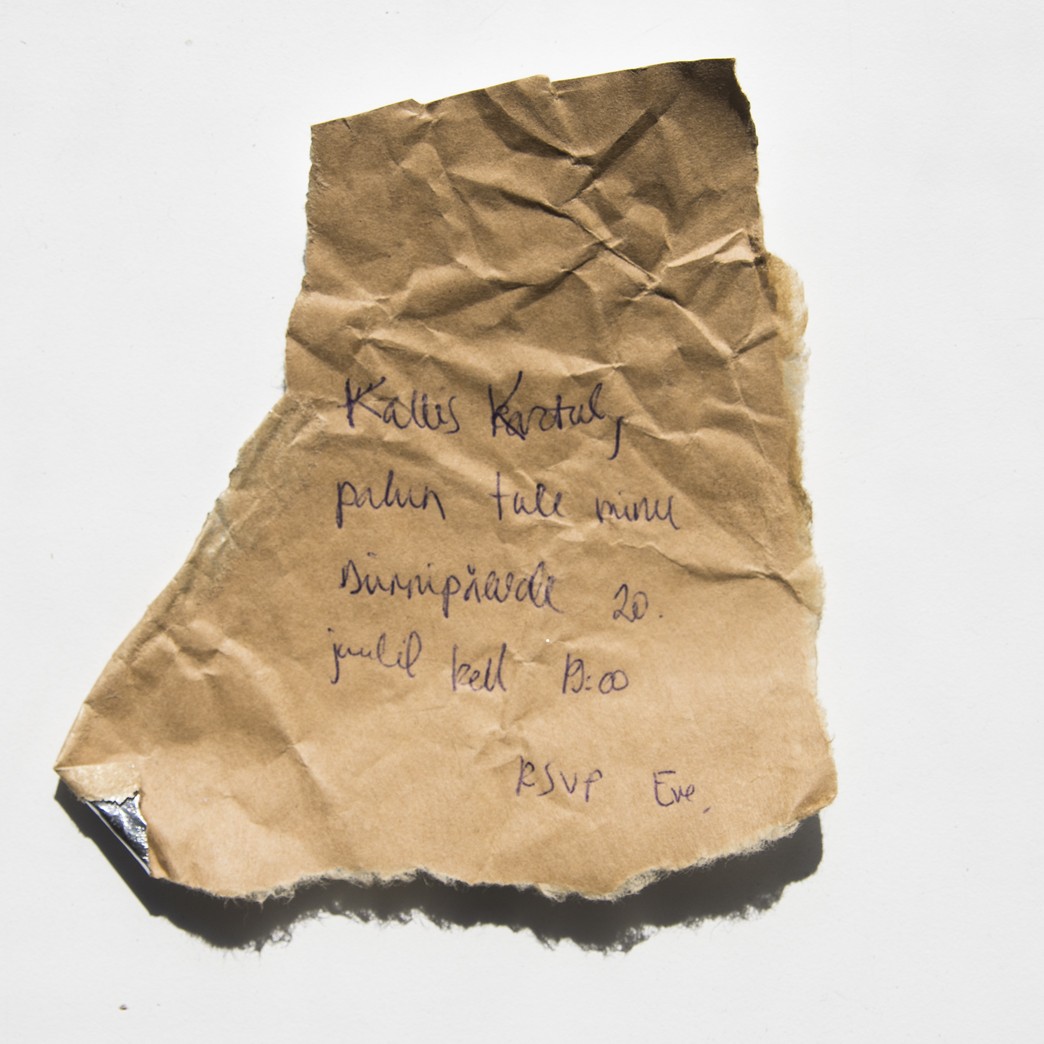 Kallis Kristal,
palun tule minu
sünnipäevale 20.
juulil kell 19:00
RSVP Eve.